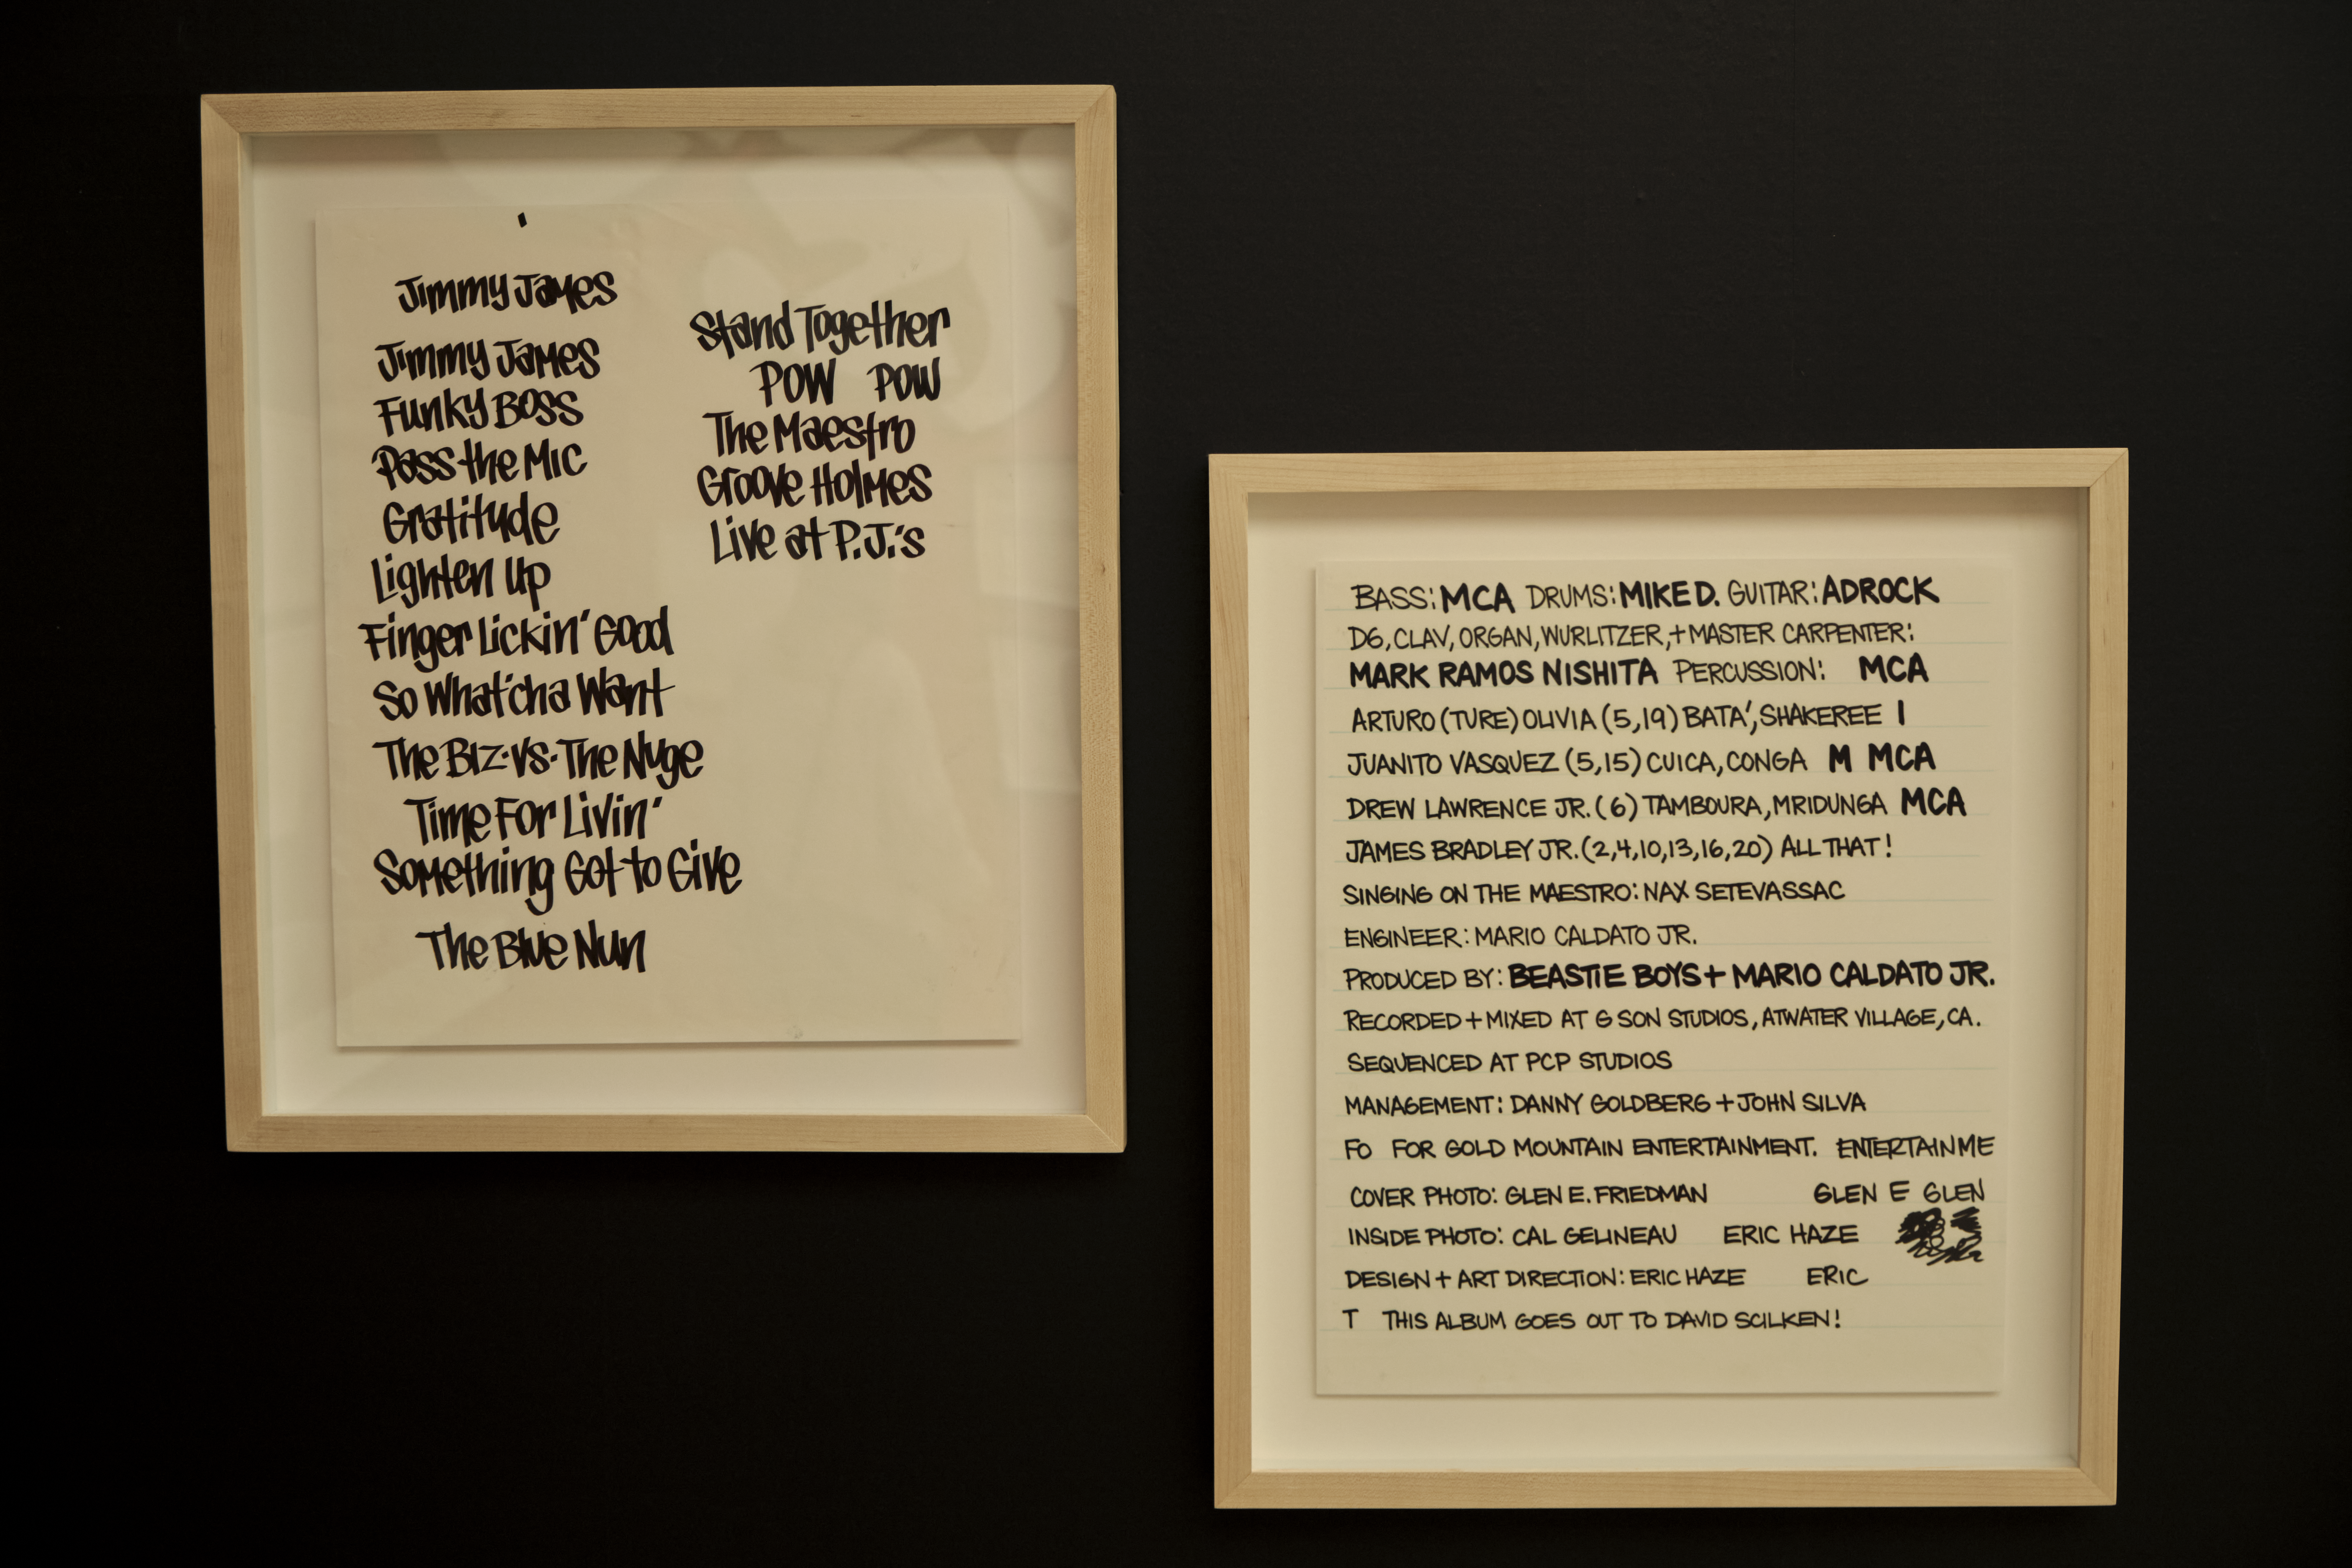 Jimmy James
Jimmy James
Funky Boss
Pass the Mic
Gratitude
Lighten Up
Finger Lickin' Good
So What'cha Want
The Biz·vs·The Nuge
Time For Livin'
Something Got to Give
The Blue Nun
Stand Together
POW POW
The Maestro
Groove Holmes
Live at P.J.'s
BASS: MCA DRUMS: MIKE D. GUITAR: ADROCK
D6, CLAV, ORGAN, WURLITZER, + MASTER CARPENTER:
MARK RAMOS NISHITA PERCUSSION: MCA
ARTURO (TURE) OLIVIA (5,19) BATA', SHAKEREE I
JUANITO VASQUEZ (5,15) CUICA, CONGA M MCA
DREW LAWRENCE JR. (6) TAMBOURA, MRIDUNGA MCA
JAMES BRADLEY JR. (2,4,10,13,16,20) ALL THAT!
SINGING ON THE MAESTRO: NAX SETEVASSAC
ENGINEER: MARIO CALDATO JR.
PRODUCED BY: BEASTIE BOYS + MARIO CALDATO JR.
RECORDED + MIXED AT G SON STUDIOS, ATWATER VILLAGE, CA.
SEQUENCED AT PCP STUDIOS
MANAGEMENT: DANNY GOLDBERG + JOHN SILVA
FO FOR GOLD MOUNTAIN ENTERTAINMENT. ENTERTAINME
COVER PHOTO: GLEN E. FRIEDMAN GLEN E GLEN
INSIDE PHOTO: CAL GELINEAU ERIC HAZE
DESIGN + ART DIRECTION: ERIC HAZE ERIC
T THIS ALBUM GOES OUT TO DAVID SCILKEN!